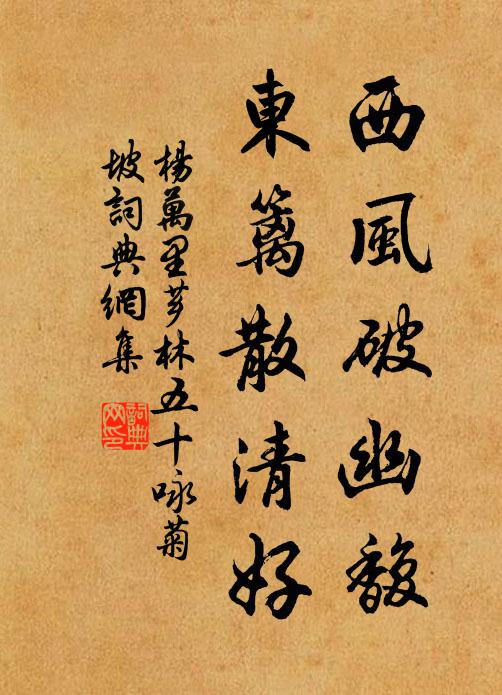 西風破幽馥
東籬散清好
楊萬里芗林五十咏菊
坡詞典網集
詞典
网印